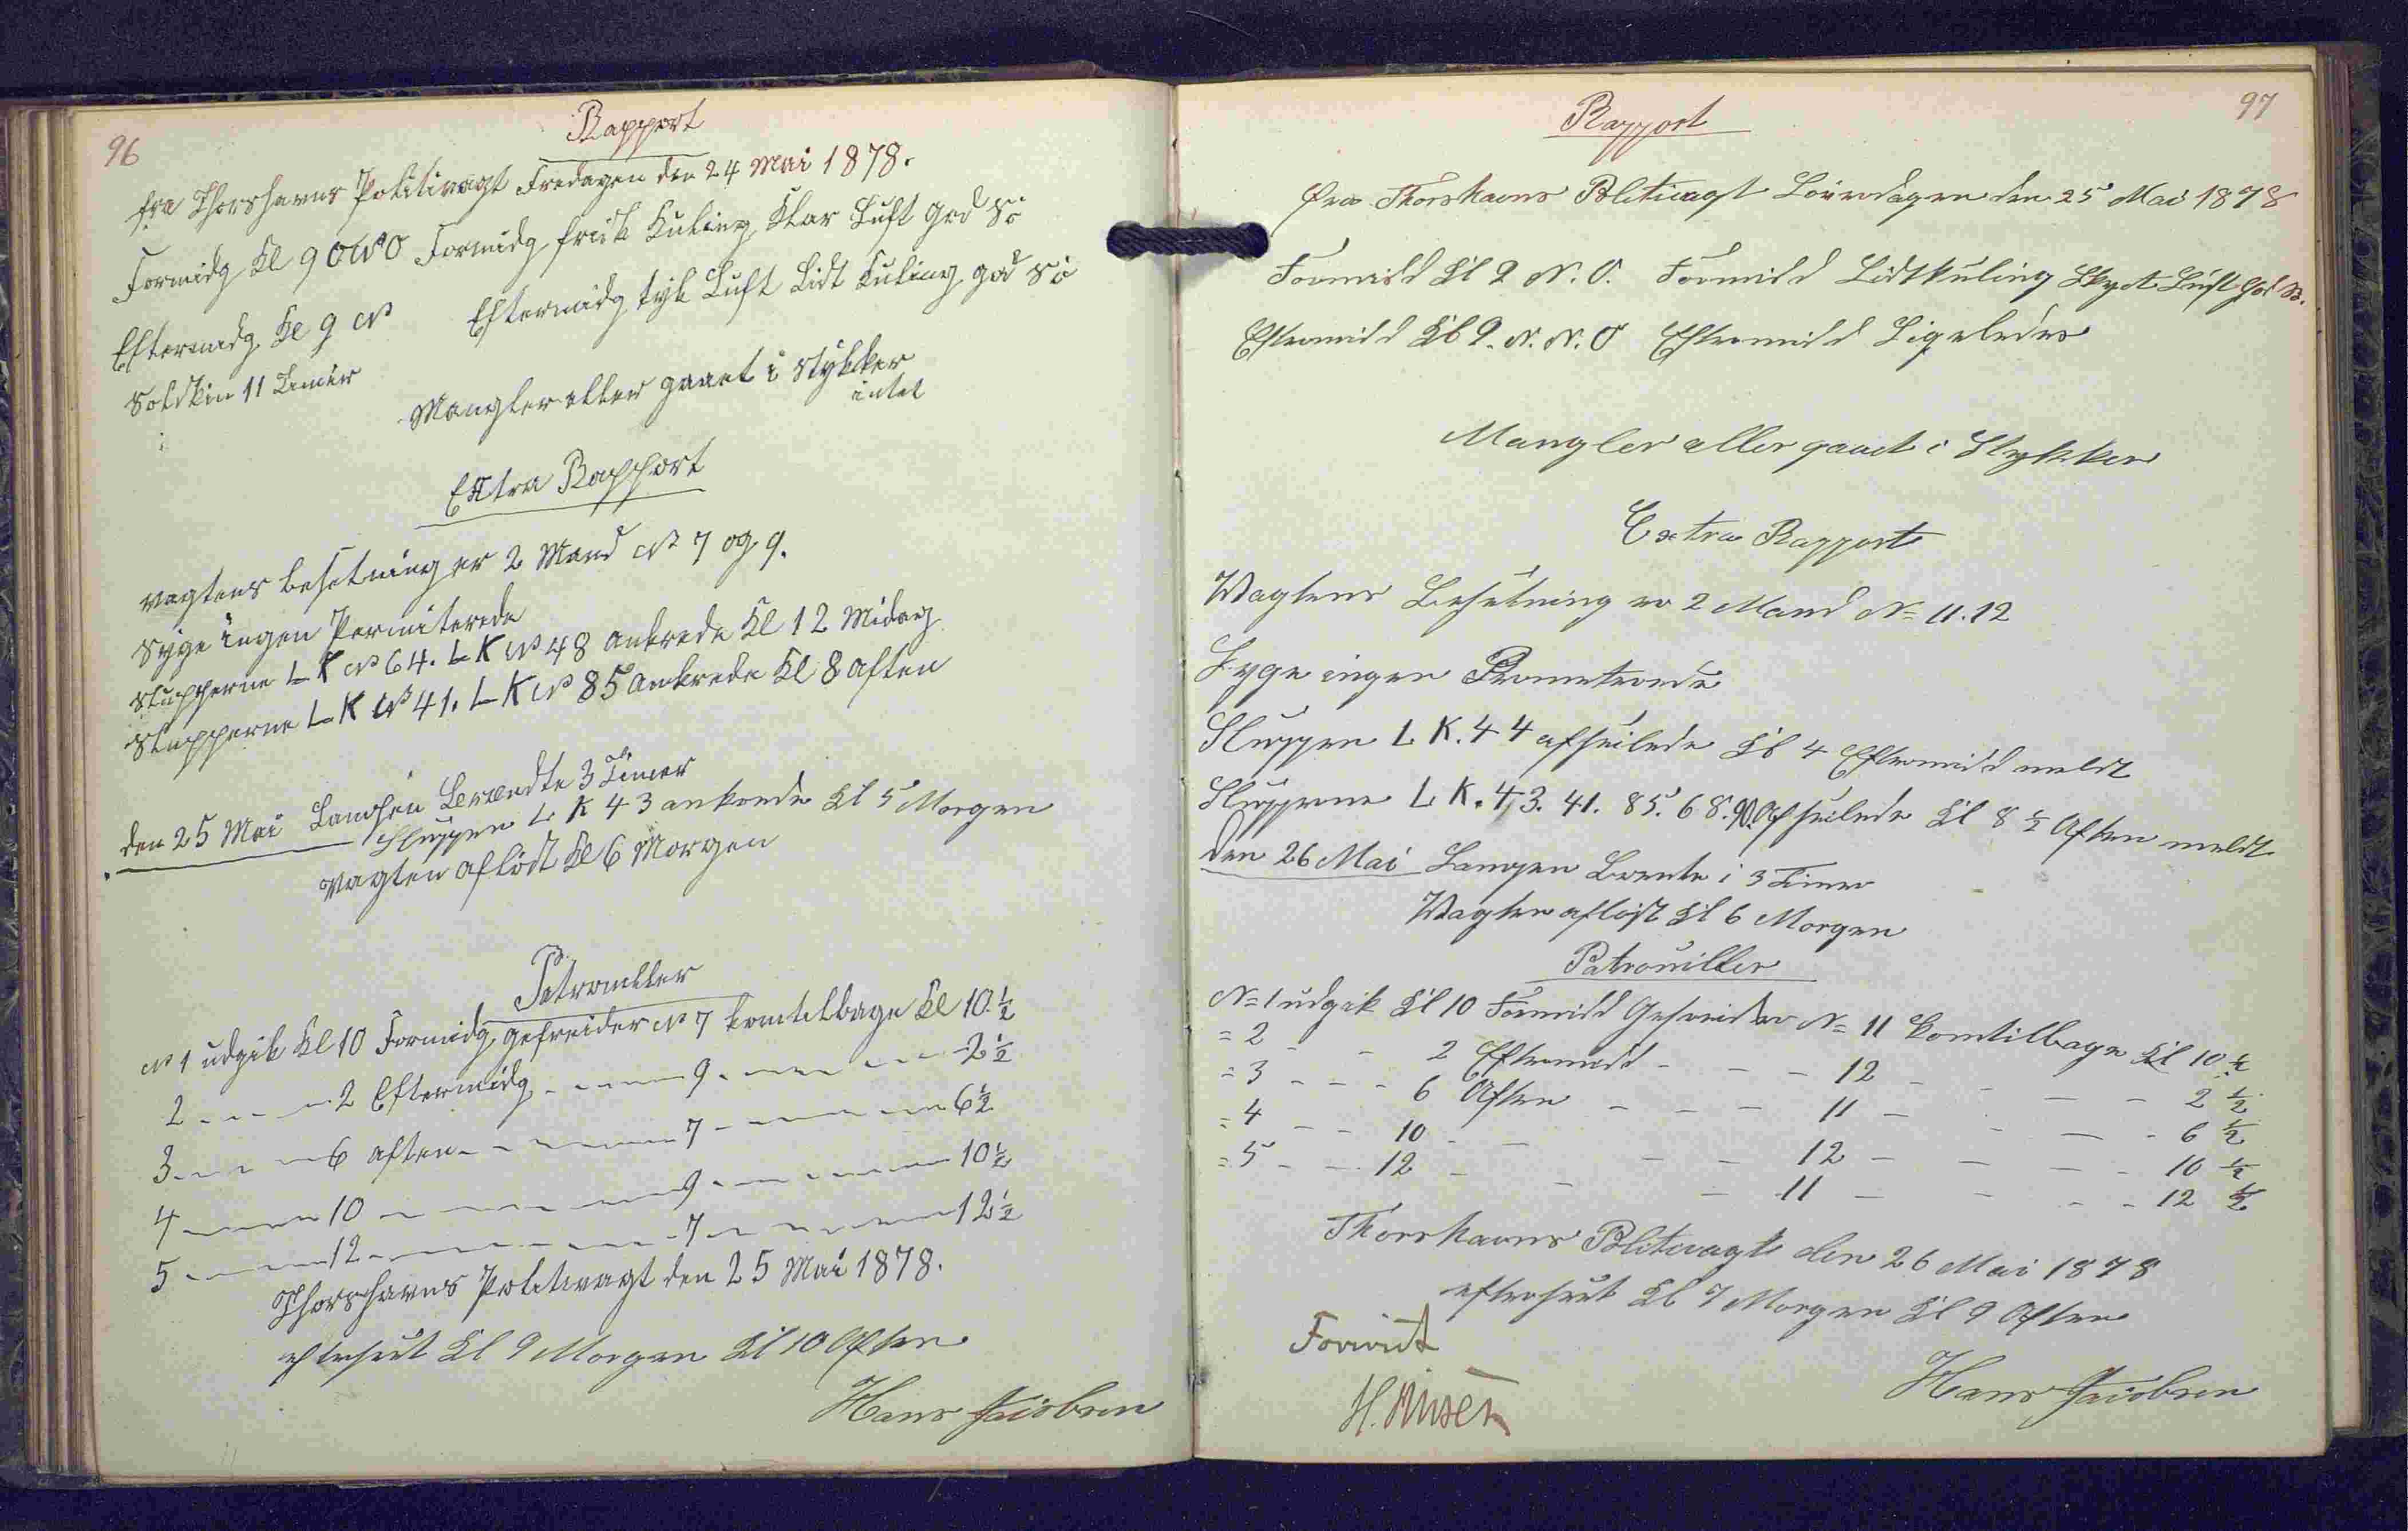 96
Rapport
fra Thorshavns Politivagt Fredagen den 24 Mai 1878.
Formidg Kl 9 ONO Formidg frisk Kuling Klar Luft god Sö
Eftermidg Kl 9 N Eftermidg tyk Luft Lidt Kuling god Sö
Solskin 11 Timer
Mangler eller gaaet i Stykker
intet
Extra Rapport
Vagtens besetning er 2 Mand No 7 og 9.
Syge ingen Permiterede
Slupperne LK No 64. LK No 48 ankrede Kl 12 Midag
Slupperne LK No 41. LK No 85 ankrede Kl 8 aften
den 25 Mai Lampen brendte 3 Timer
Sluppen L K 43 ankrede Kl 5 Morgen
Vagten aflöst Kl 6 Morgen
Patrouller
No 1 udgik Kl 10 Formidg gefreider No 7 kom tilbage Kl 10 ½
2 - - - 2 Eftermidg - - - 9 - - - 2 ½
3 - - - 6 aften - - - 7 - - - 6 ½
4 - - - 10 - - - 9 - - - 10 ½
5 - - - 12 - - - 7 - - - 12 ½
Thorshavns Politivagt den 25 Mai 1878.
efterseet Kl 9 Morgen Kl 10 Aften
Hans Jacobsen
97
Rapport
fra Thorshavns Politivagt Löverdagen den 25 Mai 1878
Formidd Kl 9 N. O. Formidd Lidt kuling Skyet Luft God Sö.
Eftermidd Kl 9. N. N. O Eftermidd Ligeledes
Mangler eller gaaet i Stykker
Extra Rapport
Wagtens Besetning er 2 Mand No 11. 12
Syge ingen Permeterede
Sluppen L K. 44 afseilede Kl 4 Eftermidd meldt
Slupperne L K. 43. 41. 85. 68. 90. Afseilede Kl 8 ½ Aften meldt
den 26 Mai Lampen Brente i 3 Timer
Wagten aflöst Kl 6 Morgen
Patrouiller
No 1 udgik Kl 10 Formidd Gefreider No 11 kom tilbage Kl 10 ½
= 2 - - 2 Eftermidd - - - 12 - - - 2 ½
= 3 - - - 6 Aften - - - 11 - - - 6 ½
= 4 - - 10 - - - 12 - - - 10 ½
= 5 - - 12 - - - 11 - - - 12 ½
Thorshavns Politivagt den 26 Mai 1878
efterseet Kl 7 Morgen Kl 9 Aften
Forevist
Hans Jacobsen